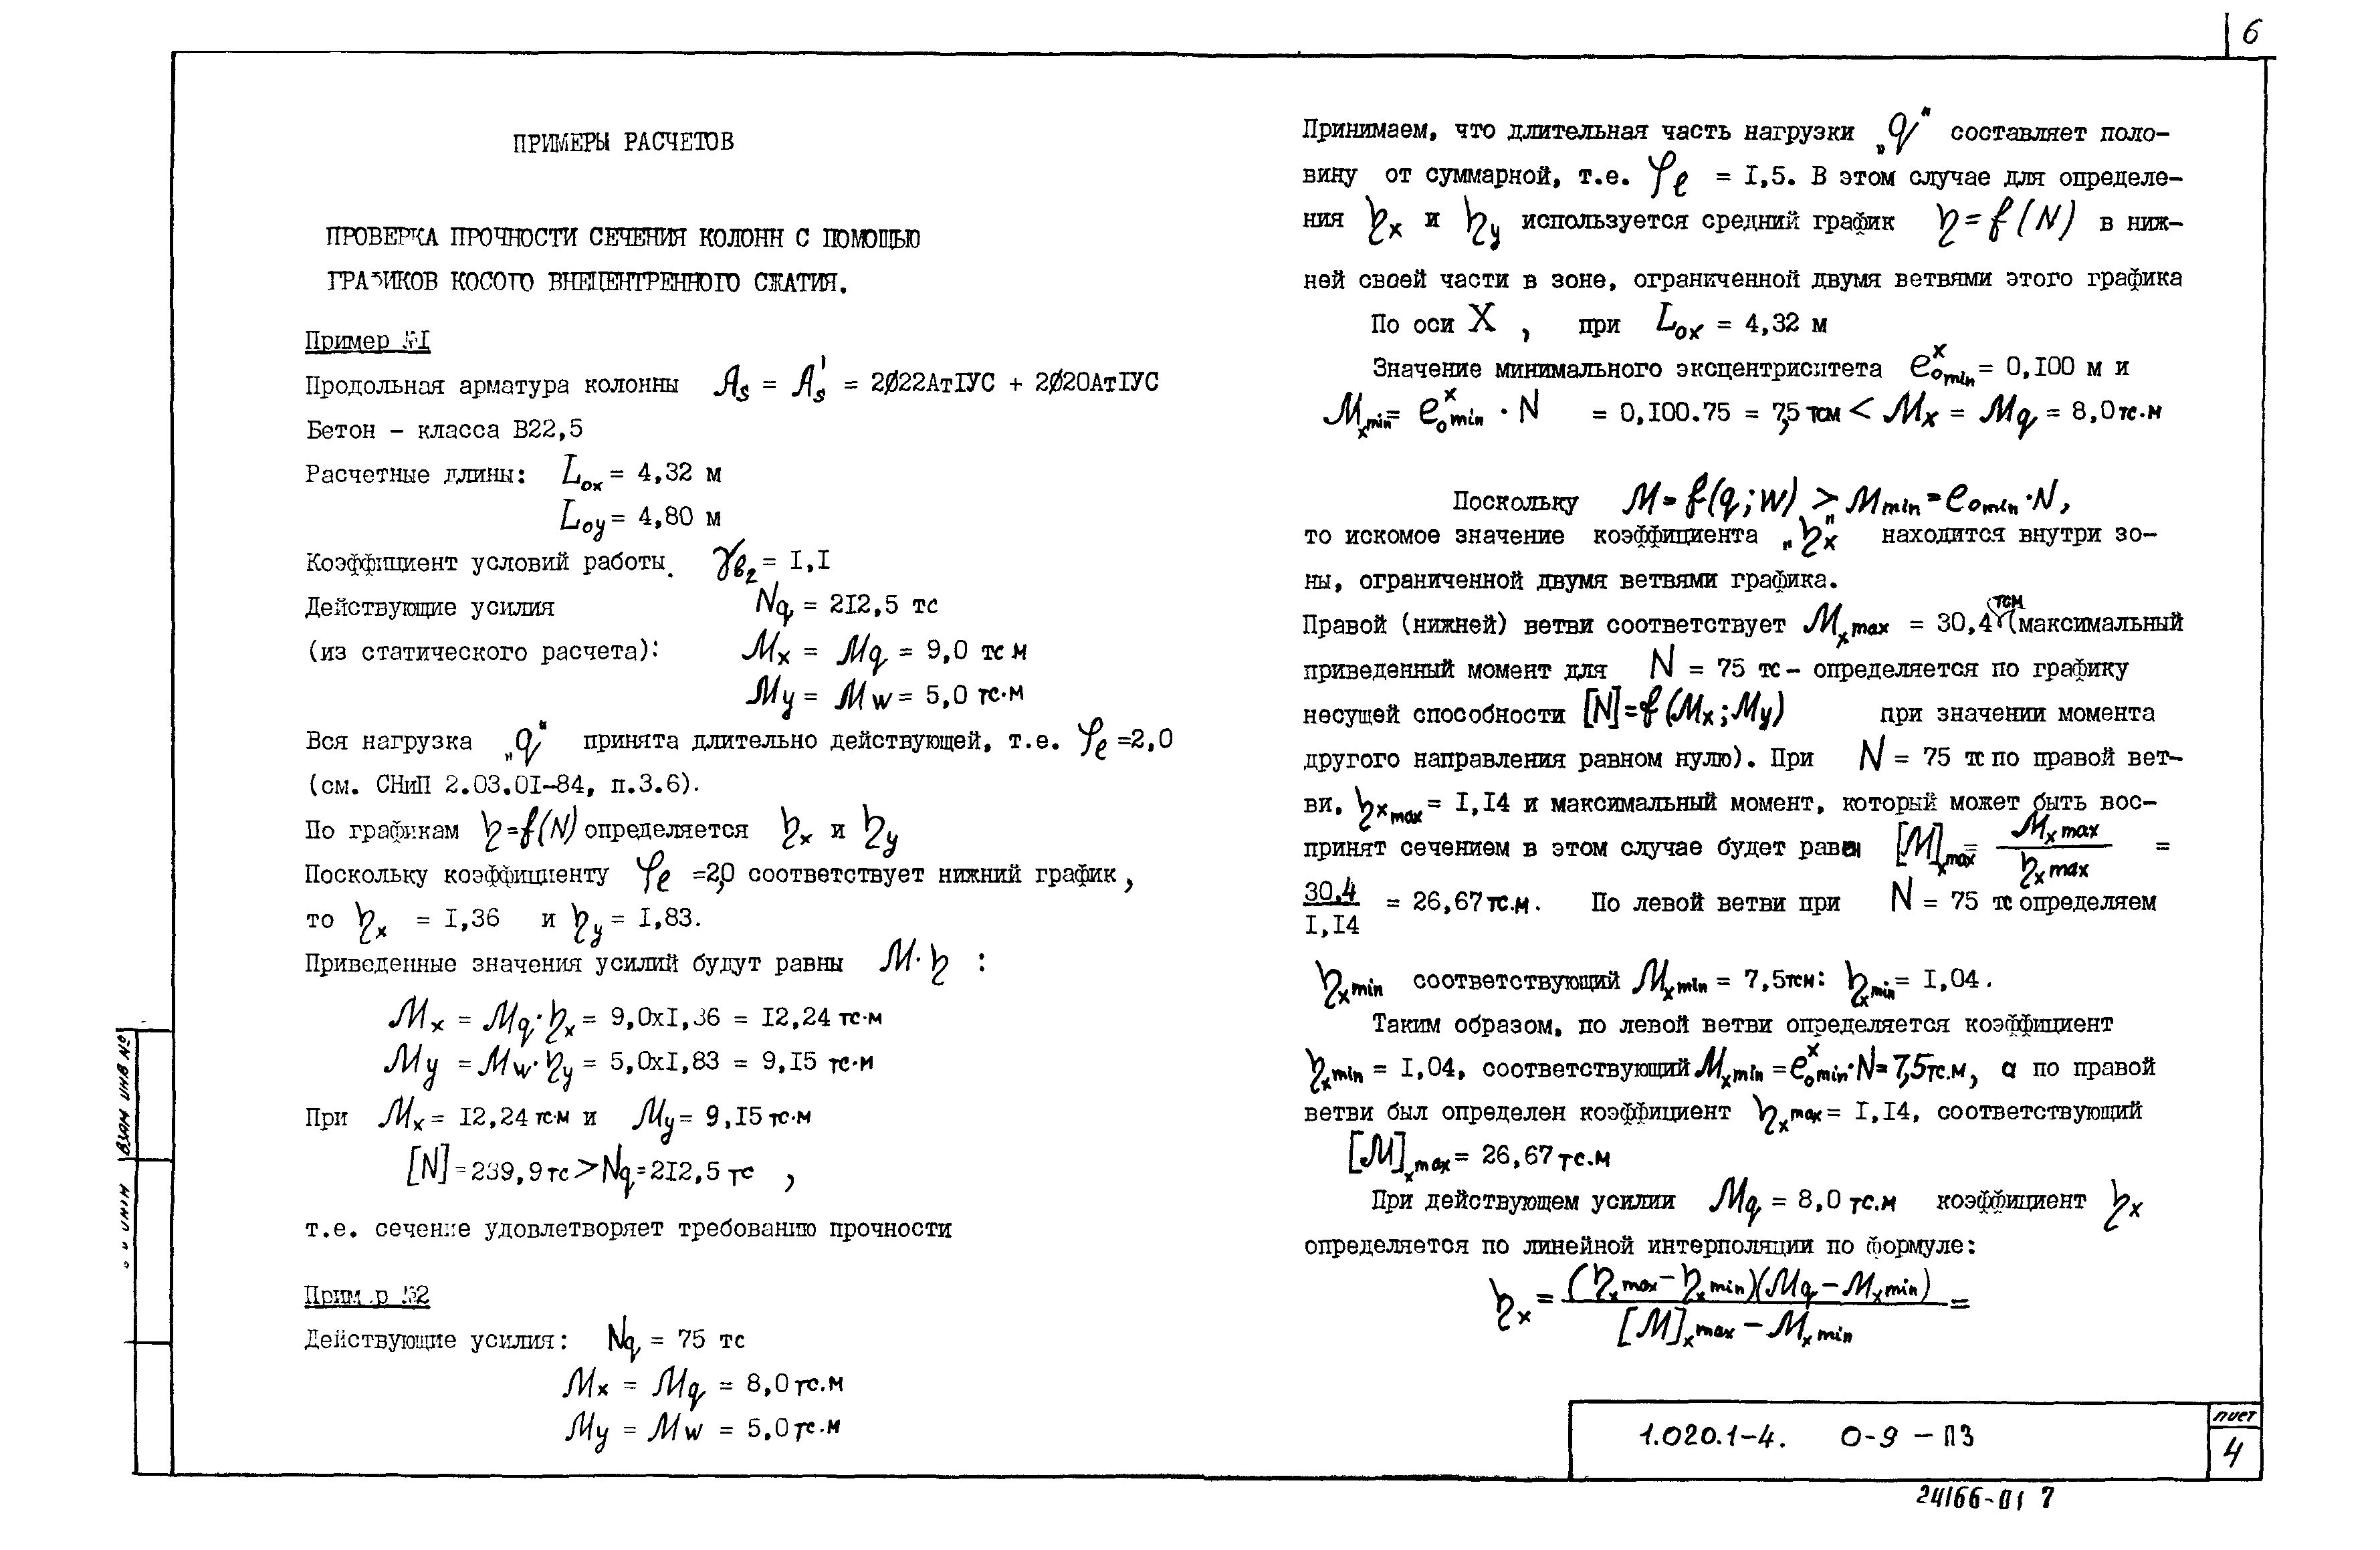 6
ПРИМЕРЫ РАСЧЕТОВ
ПРОВЕРКА ПРОЧНОСТИ СЕЧЕНИЯ КОЛОНН С ПОМОЩЬЮ
ГРАФИКОВ КОСОГО ВНЕЦЕНТРЕННОГО СЖАТИЯ.
Пример №1
Продольная арматура колонны As = As' = 2Ø22АтIУС + 2Ø20АтIУС
Бетон – класса В22,5
Расчетные длины: Lox = 4,32 м
Loy = 4,80 м
Коэффициент условий работы γв2 = I,I
Действующие усилия Nq = 2I2,5 тс
(из статического расчета): Mx = Mq = 9,0 тсм
My = Mw = 5,0 тс·м
Вся нагрузка „q" принята длительно действующей, т.е. φℓ =2,0
(см. СНиП 2.03.0I–84, п.3.6).
По графикам η=f(N) определяется ηx и ηy
Поскольку коэффициенту φℓ =2,0 соответствует нижний график,
то ηx = I,36 и ηy = I,83.
Приведенные значения усилий будут равны M·η :
Mx = Mq·ηx = 9,0xI,36 = I2,24 тс·м
My = Mw·ηy = 5,0xI,83 = 9,I5 тс·м
При Mx = I2,24 тс·м и My = 9,I5 тс·м
[N] = 239,9 тс > Nq = 2I2,5 тс ,
т.е. сечение удовлетворяет требованию прочности
Прим р №2
Действующие усилия: Nq = 75 тс
Mx = Mq = 8,0 тс.м
My = Mw = 5,0 тс.м
Принимаем, что длительная часть нагрузки „q" составляет поло–
вину от суммарной, т.е. φℓ = I,5. В этом случае для определе–
ния ηx и ηy используется средний график η=f(N) в ниж–
ней своей части в зоне, ограниченной двумя ветвями этого графика
По оси X , при Lox = 4,32 м
Значение минимального эксцентриситета e^x_omin = 0,I00 м и
Mxmin = e^x_omin · N = 0,I00.75 = 7,5 тсм < Mx = Mq = 8,0 тс.м
Поскольку M = f(q;w) > Mmin = eomin·N,
то искомое значение коэффициента „ηx" находится внутри зо–
ны, ограниченной двумя ветвями графика.
Правой (нижней) ветви соответствует Mxmax = 30,4 тсм (максимальный
приведенный момент для N = 75 тс – определяется по графику
несущей способности [N]=f(Mx;My) при значении момента
другого направления равном нулю). При N = 75 тс по правой вет–
ви, ηxmax = I,I4 и максимальный момент, который может быть вос–
принят сечением в этом случае будет равен [M]xmax = Mxmax / ηxmax =
30,4 / I,I4 = 26,67 тс.м. По левой ветви при N = 75 тс определяем
ηxmin соответствующий Mxmin = 7,5тсм: ηxmin = I,04.
Таким образом, по левой ветви определяется коэффициент
ηxmin = I,04, соответствующий Mxmin = e^x_omin·N = 7,5тс.м, а по правой
ветви был определен коэффициент ηxmax = I,I4, соответствующий
[M]xmax = 26,67 тс.м
При действующем усилии Mq = 8,0 тс.м коэффициент ηx
определяется по линейной интерполяции по формуле:
ηx = (ηxmax – ηxmin)(Mq – Mxmin) / [M]xmax – Mxmin =
1.020.1–4. 0-9 – ПЗ
лист
4
24166-01 7
ВЗАМ ИНВ №